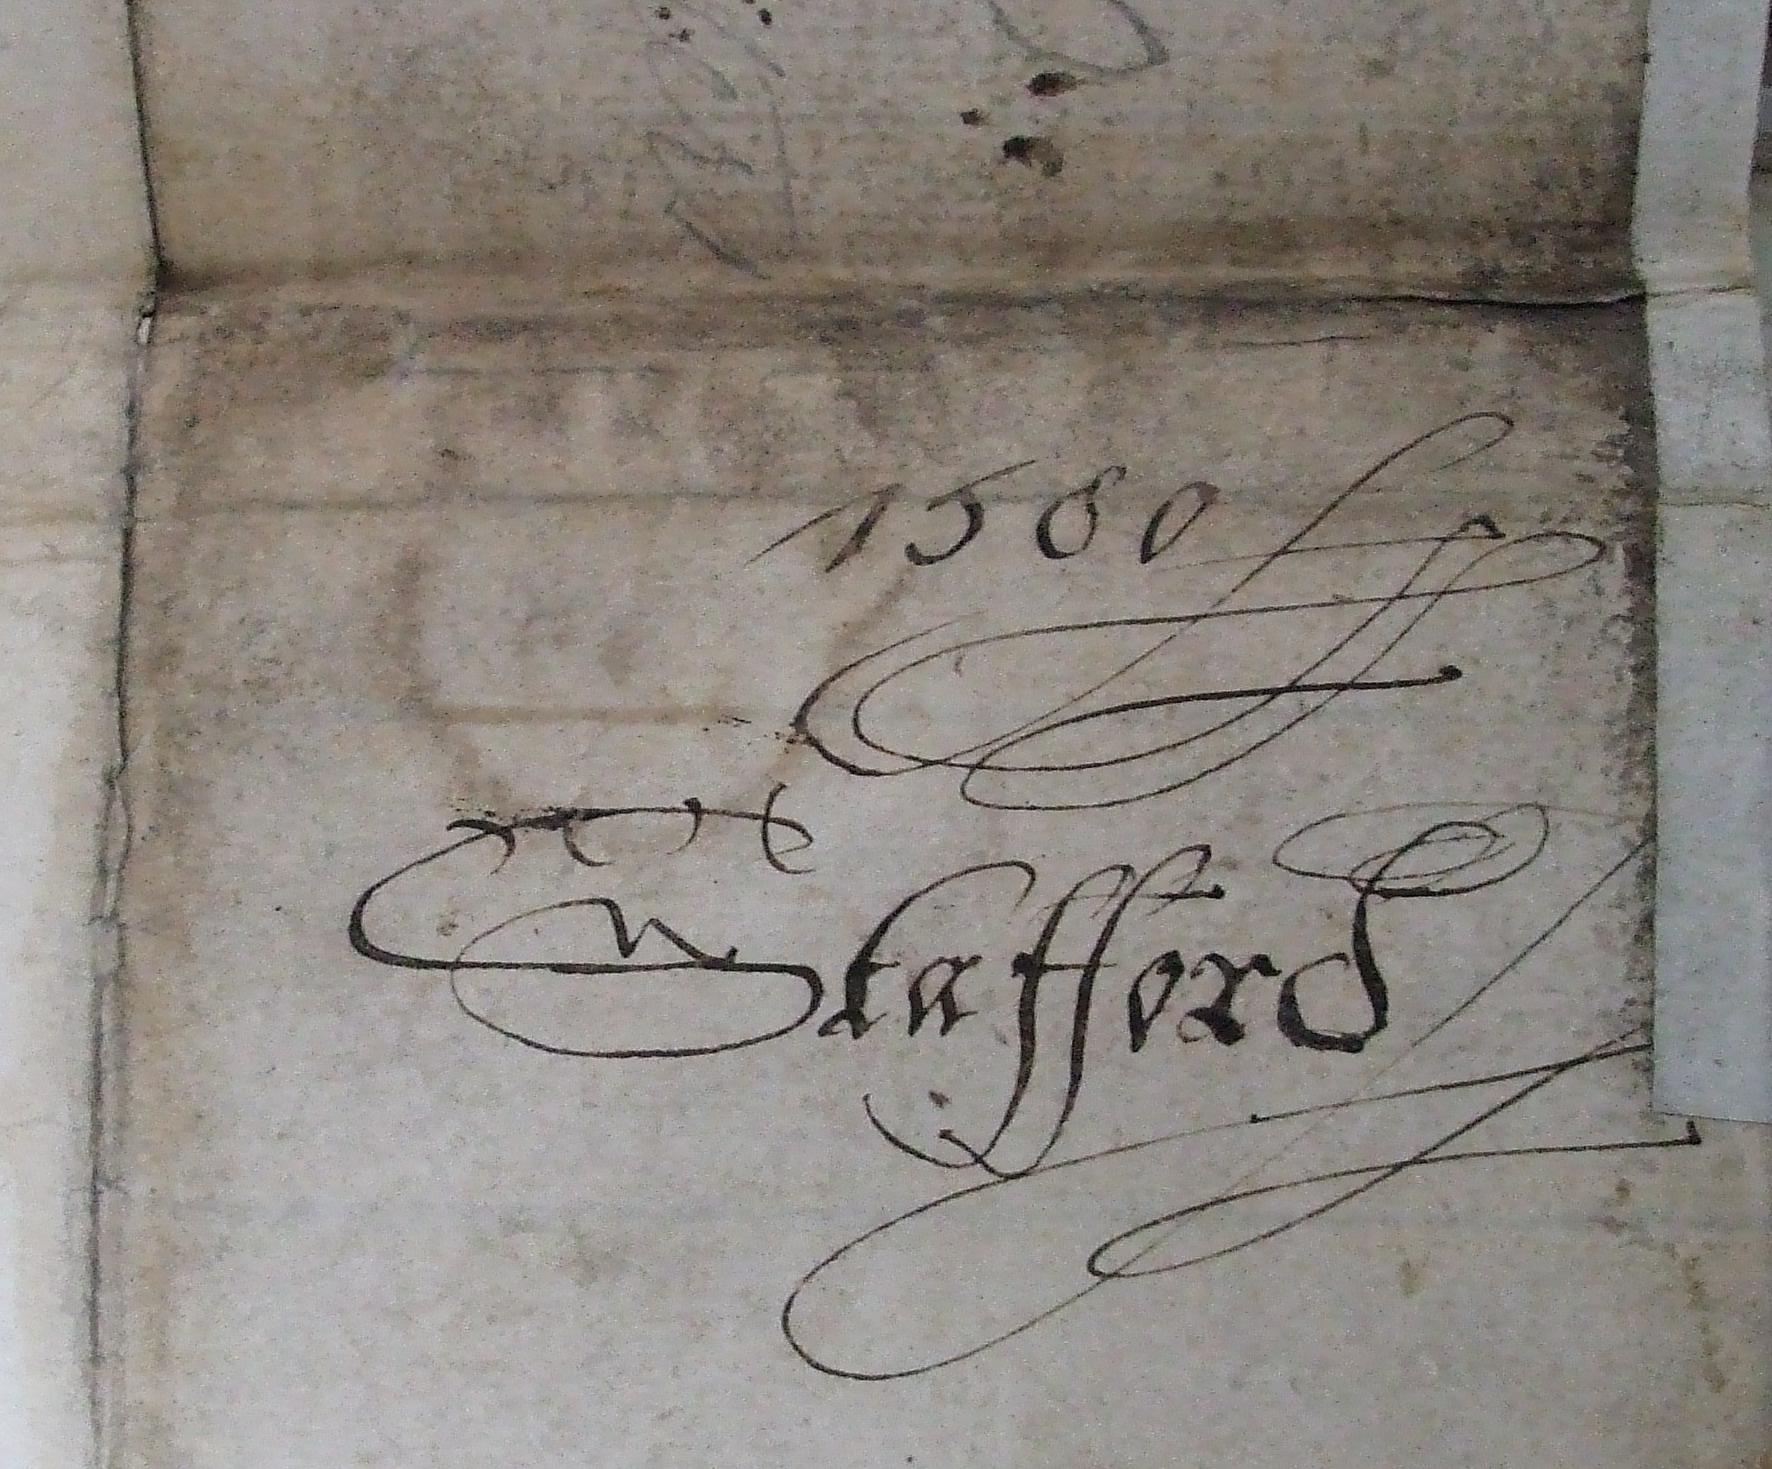 1580
Stafford